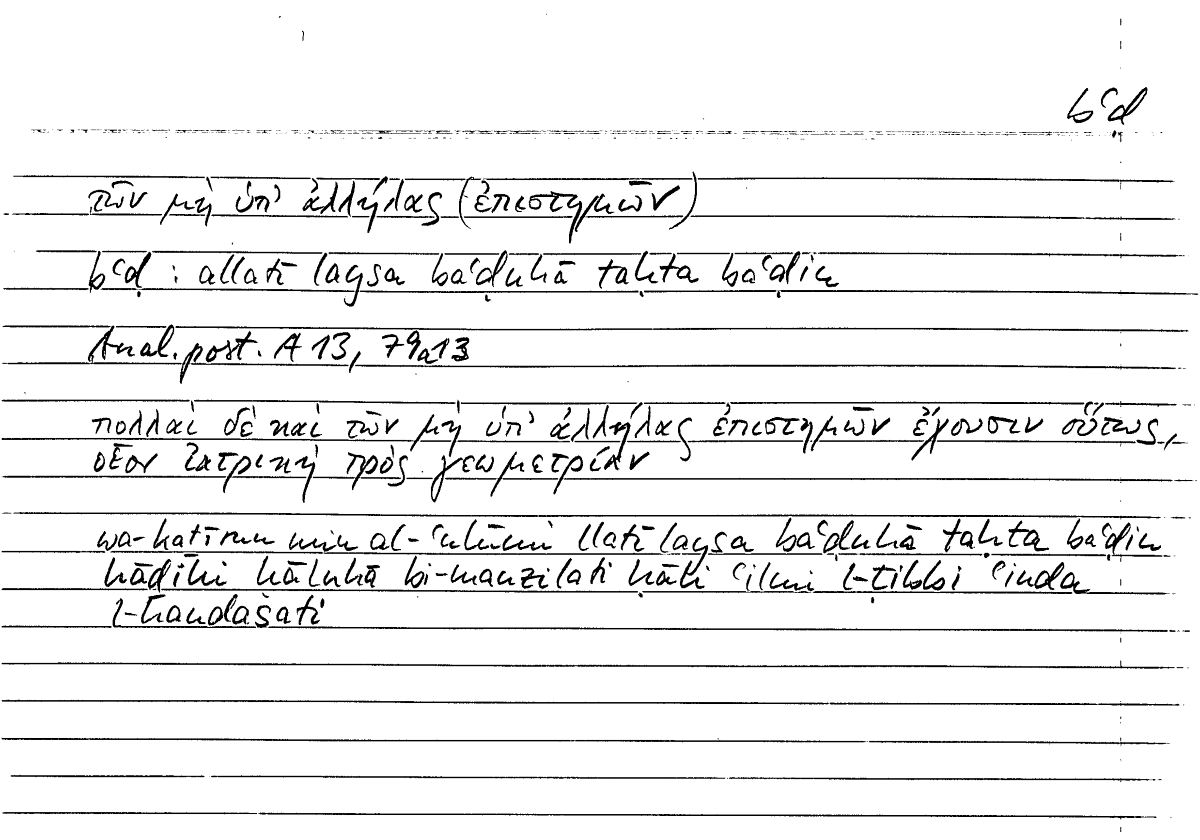 bʿḍ
τῶν μὴ ὑπ' ἀλλήλας (ἐπιστημῶν)
bʿḍ : allatī laysa baʿḍuhā taḥta baʿḍin
Anal. post. A 13, 79a13
πολλαὶ δὲ καὶ τῶν μὴ ὑπ' ἀλλήλας ἐπιστημῶν ἔχουσιν οὕτως,
οἷον ἰατρικὴ πρὸς γεωμετρίαν
wa-katīrun min al-ʿulūmi llatī laysa baʿḍuhā taḥta baʿḍin
hādihi ḥāluhā bi-manzilati ḥāli ʿilmi l-ṭibbi ʿinda
l-handasati